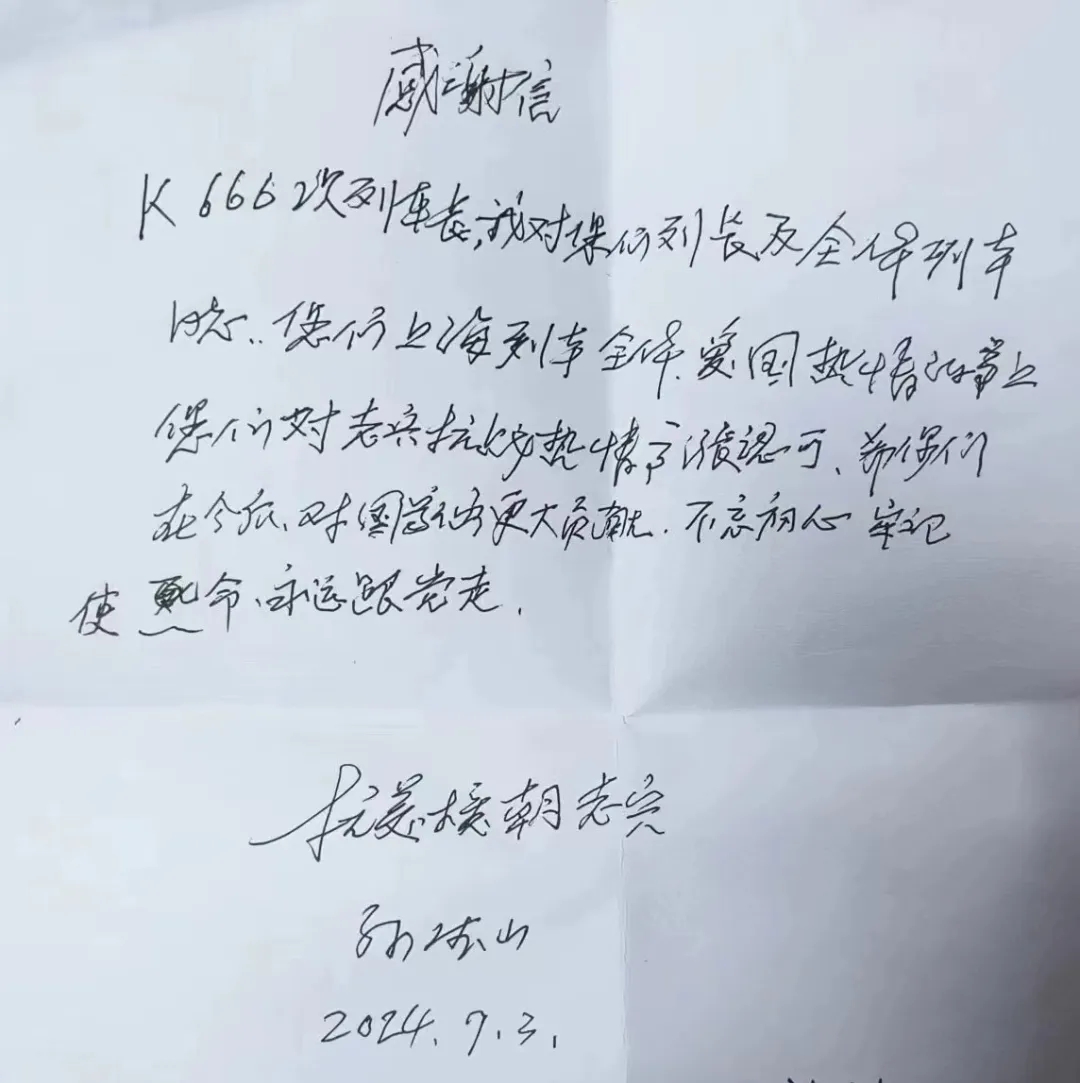 感谢信
K666次列车长,我对你们列长及全体列车
您们上海列车全体爱国热情
您们对老兵抗战热情高涨认可、希你们
在今后、对国家更大贡献.不忘初心牢记
使命、永远跟党走.
抗美援朝老兵
孙 山
2024.7.3.